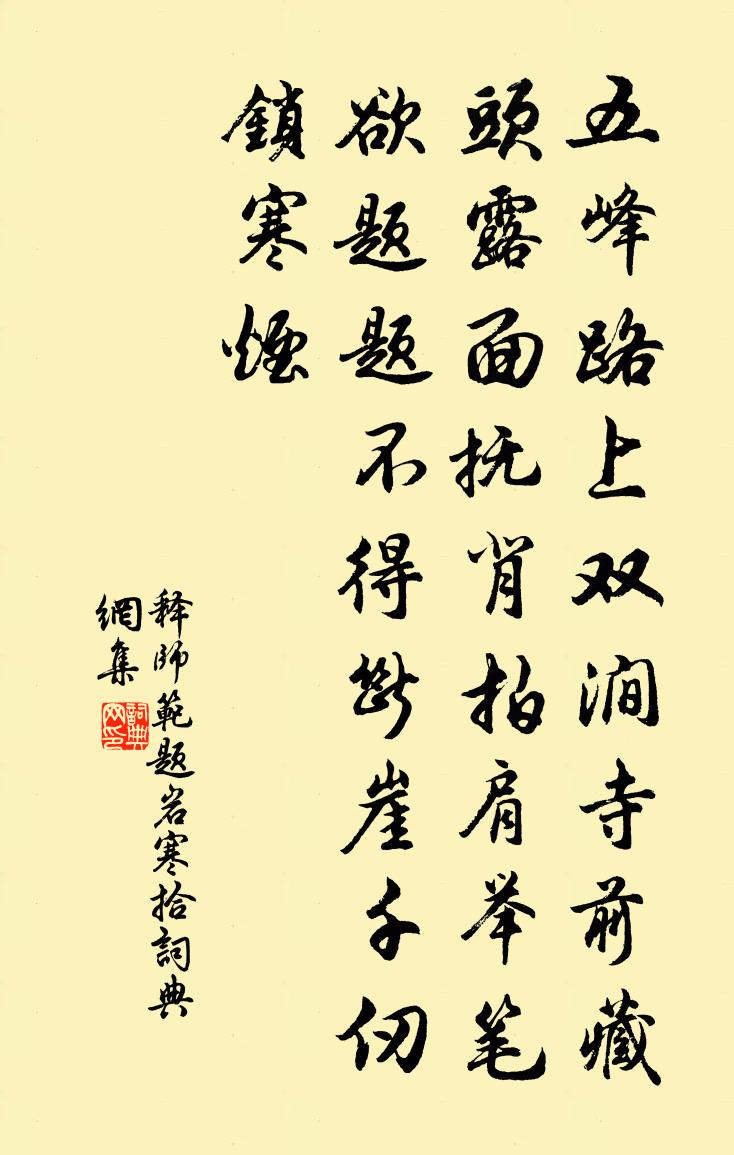 五峰路上双涧寺前藏
頭露面抚背拍肩举笔
欲题题不得断崖千仞
鎖寒煙
释師範题岩寒拾詞典
網集
詞典
网印